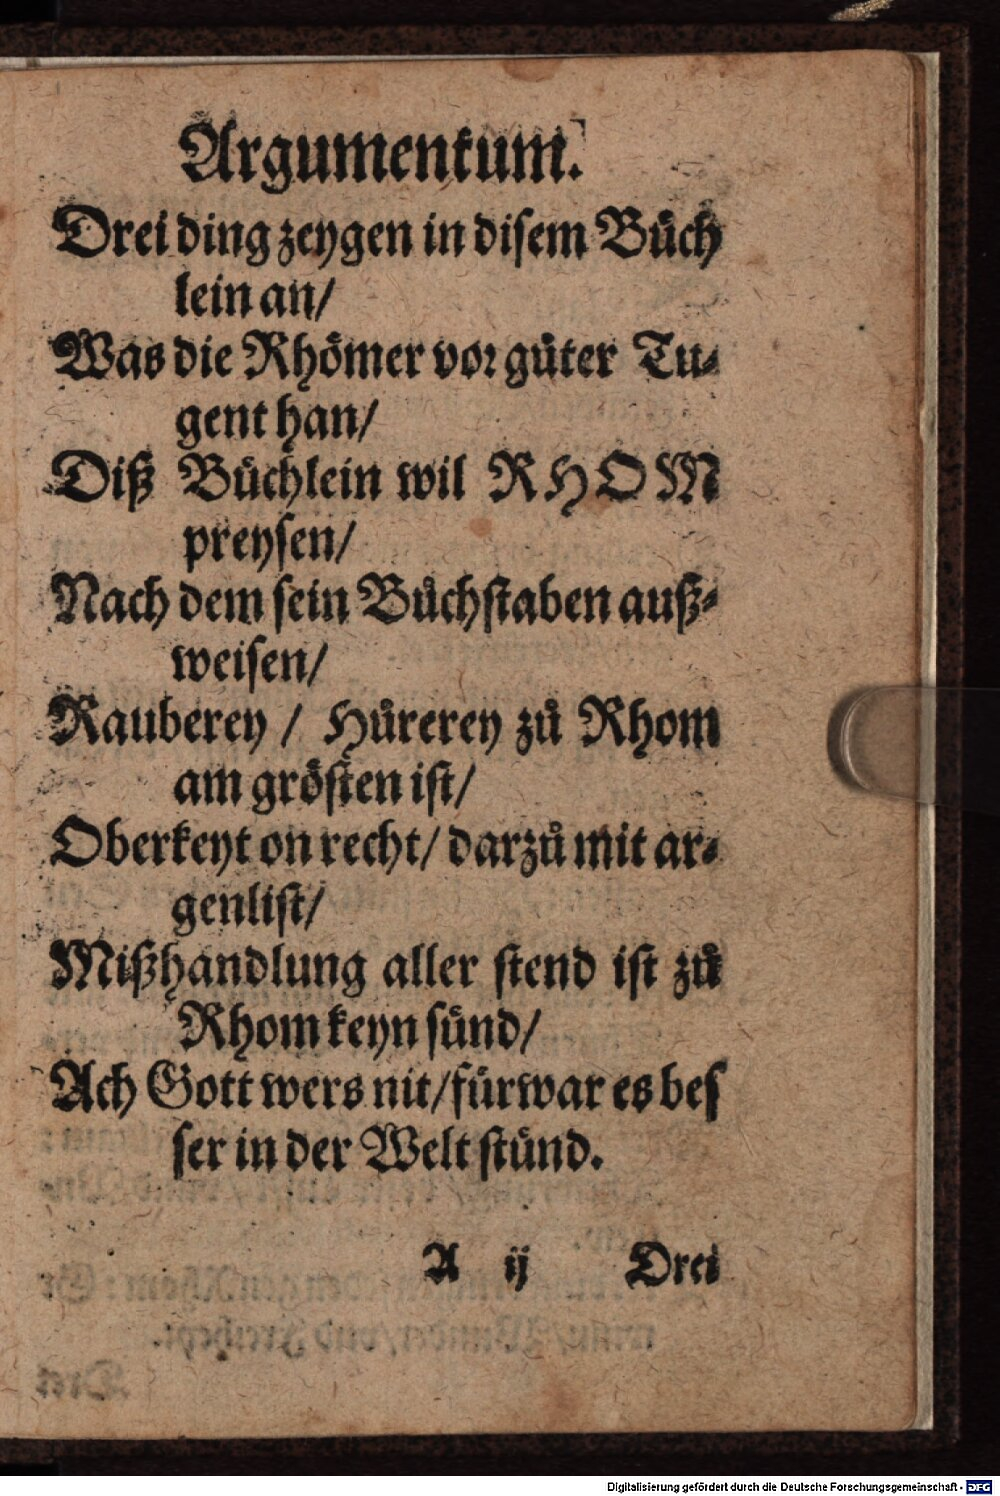 Argumentum.
Drei ding zeygen in disem Bůch
lein an/
Was die Rhömer vor gůter Tu⸗
gent han/
Diß Bůchlein wil RHOM
preysen/
Nach dem sein Bůchstaben auß⸗
weisen/
Rauberey / Hůrerey zů Rhom
am grösten ist/
Oberkeyt on recht/ darzů mit ar⸗
genlist/
Mißhandlung aller stend ist zů
Rhom keyn sünd/
Ach Gott wers nit/fürwar es bes
ser in der Welt stünd.
A ij Drei
Digitalisierung gefördert durch die Deutsche Forschungsgemeinschaft - DFG